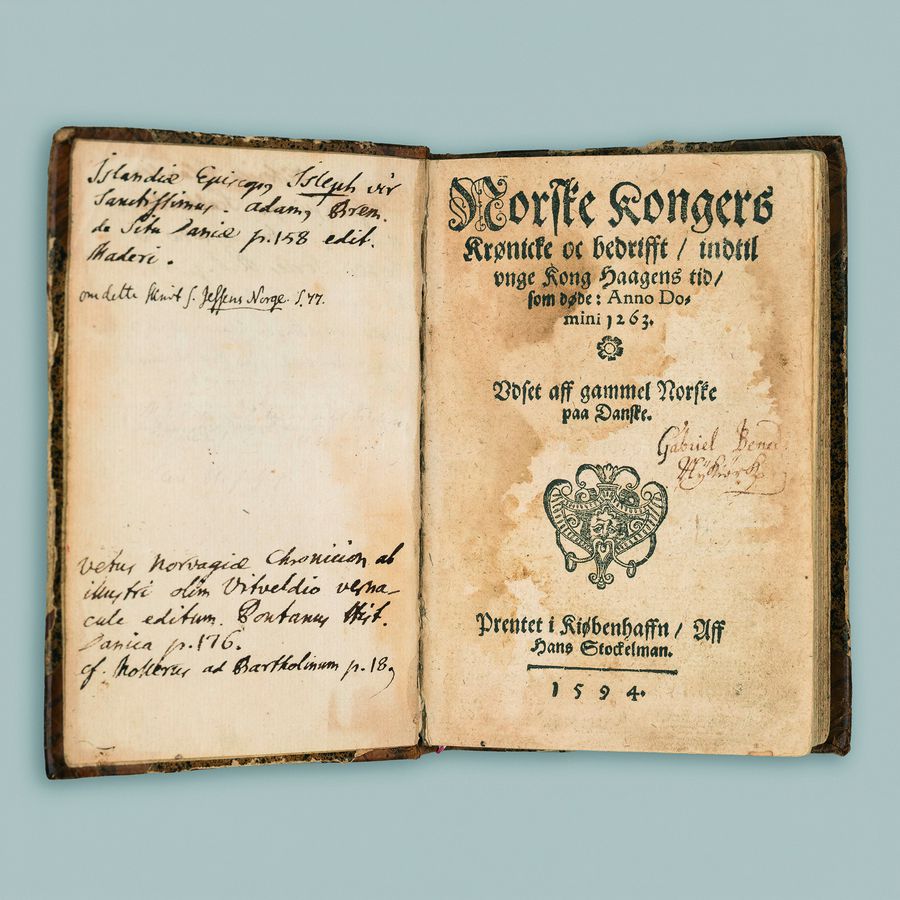 Islandiæ Episcop, Isleph vir
Sanctissimus. Adam, Brem.
de Situ Daniæ p.158 edit.
Maderi.
om dette skrivt s. Jessens Norge. S.77.
Vetus Norvagiæ Chronicion ab
illustri olim Vitveldio verna-
cule editum. Pontanus Hist.
Danica p.176.
cf. Mollerus ad Bartholinum p.18,
Norske Kongers
Krønicke oc bedrifft / indtil
vnge Kong Haagens tid /
som døde: Anno Do-
mini 1263.
Vdset aff gammel Norske
paa Danske.
Gabriel
Prentet i Kiøbenhaffn / Aff
Hans Stockelman.
1594.